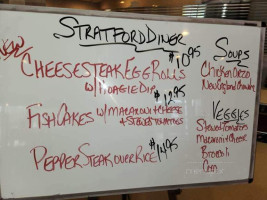 STRATFORD DINER
NEW
$10.95
CHEESESTEAK EGG ROLLS
W/ HOAGIE DIP
$12.95
FISH CAKES W/ MACARONI + CHEESE
+ STEWED TOMATOES
PEPPER STEAK OVER RICE $14.95
SOUPS
Chicken Orzo
New England Chowder
VEGGIES
Stewed Tomatoes
Macaroni + Cheese
Broccoli
Corn